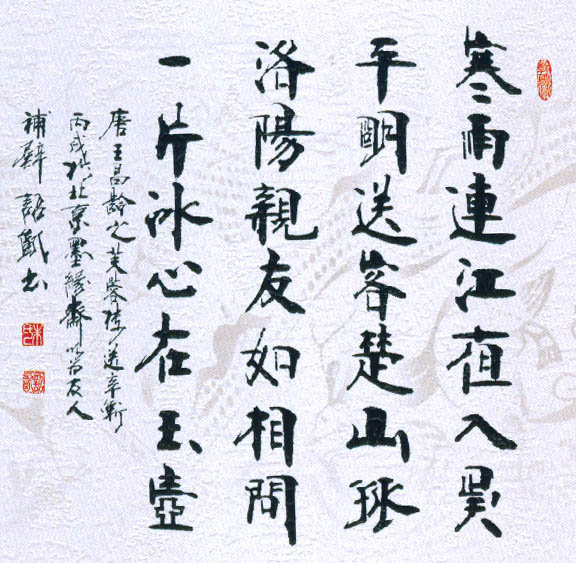 寒雨連江夜入吳
平明送客楚山孤
洛陽親友如相問
一片冰心在玉壺
唐王昌齡之芙蓉楼送辛漸
丙戌北京墨緣齋以友人
補書